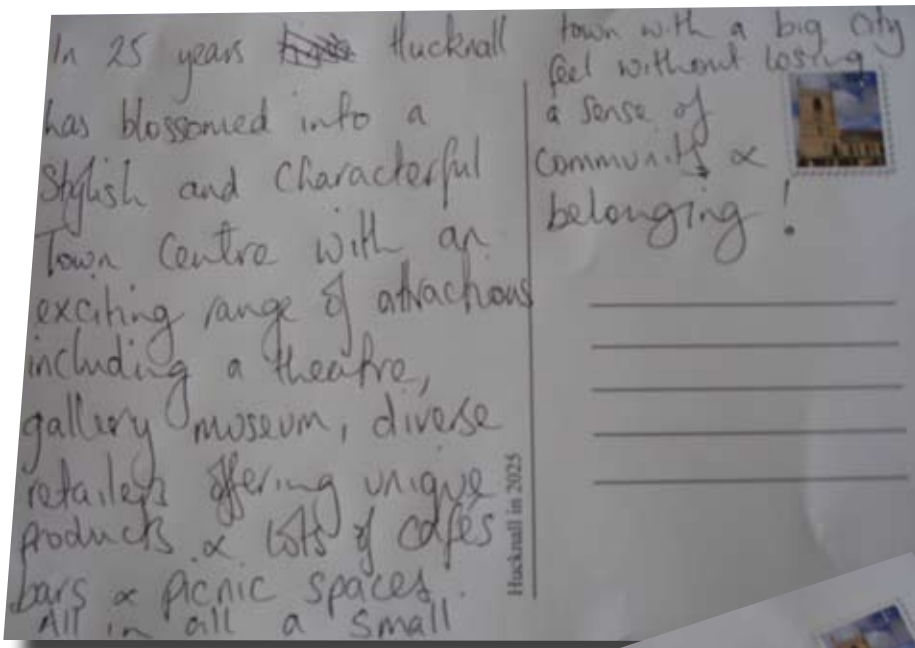 In 25 years Hucknall
has blossomed into a
Stylish and characterful
Town Centre with an
exciting range of attractions
including a theatre,
gallery museum, diverse
retailers offering unique
products & lots of cafés
bars & picnic spaces.
All in all a small
town with a big city
feel without losing
a sense of
community &
belonging!
Hucknall in 2025